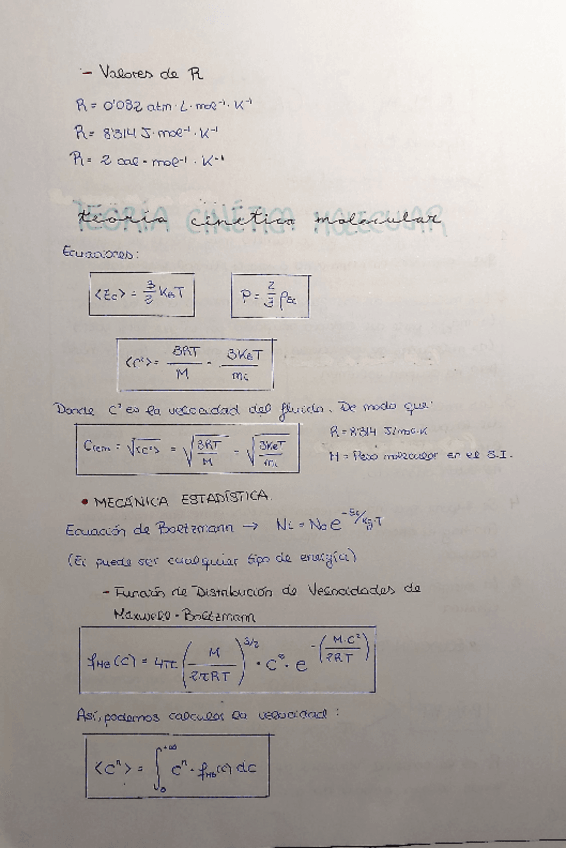 - Valores de R
R = 0'082 atm · L · mol⁻¹ · K⁻¹
R = 8'314 J · mol⁻¹ · K⁻¹
R = 2 cal · mol⁻¹ · K⁻¹
TEORÍA CINÉTICA MOLECULAR
Ecuaciones:
<Ec> = 3/2 K_B T
P = 2/3 ρ_Ec
<C²> = 3RT/M = 3K_BT/m_i
Donde C² es la velocidad del fluido. De modo que:
C_rcm = √<C²> = √(3RT/M) = √(3K_BT/m_i)
R = 8'314 J/mol·K
M = Peso molecular en el S.I.
• MECÁNICA ESTADÍSTICA.
Ecuación de Boltzmann → N_i = N_0 e^(-E_i/K_B·T)
(Ei puede ser cualquier tipo de energía)
- Función de Distribución de Velocidades de
Maxwell-Boltzmann
f_MB(C) = 4π (M/2πRT)^(3/2) · C² · e^-(M·C²/2RT)
Así, podemos calcular la velocidad:
<Cⁿ> = ∫₀^+∞ Cⁿ · f_MB(C) dC